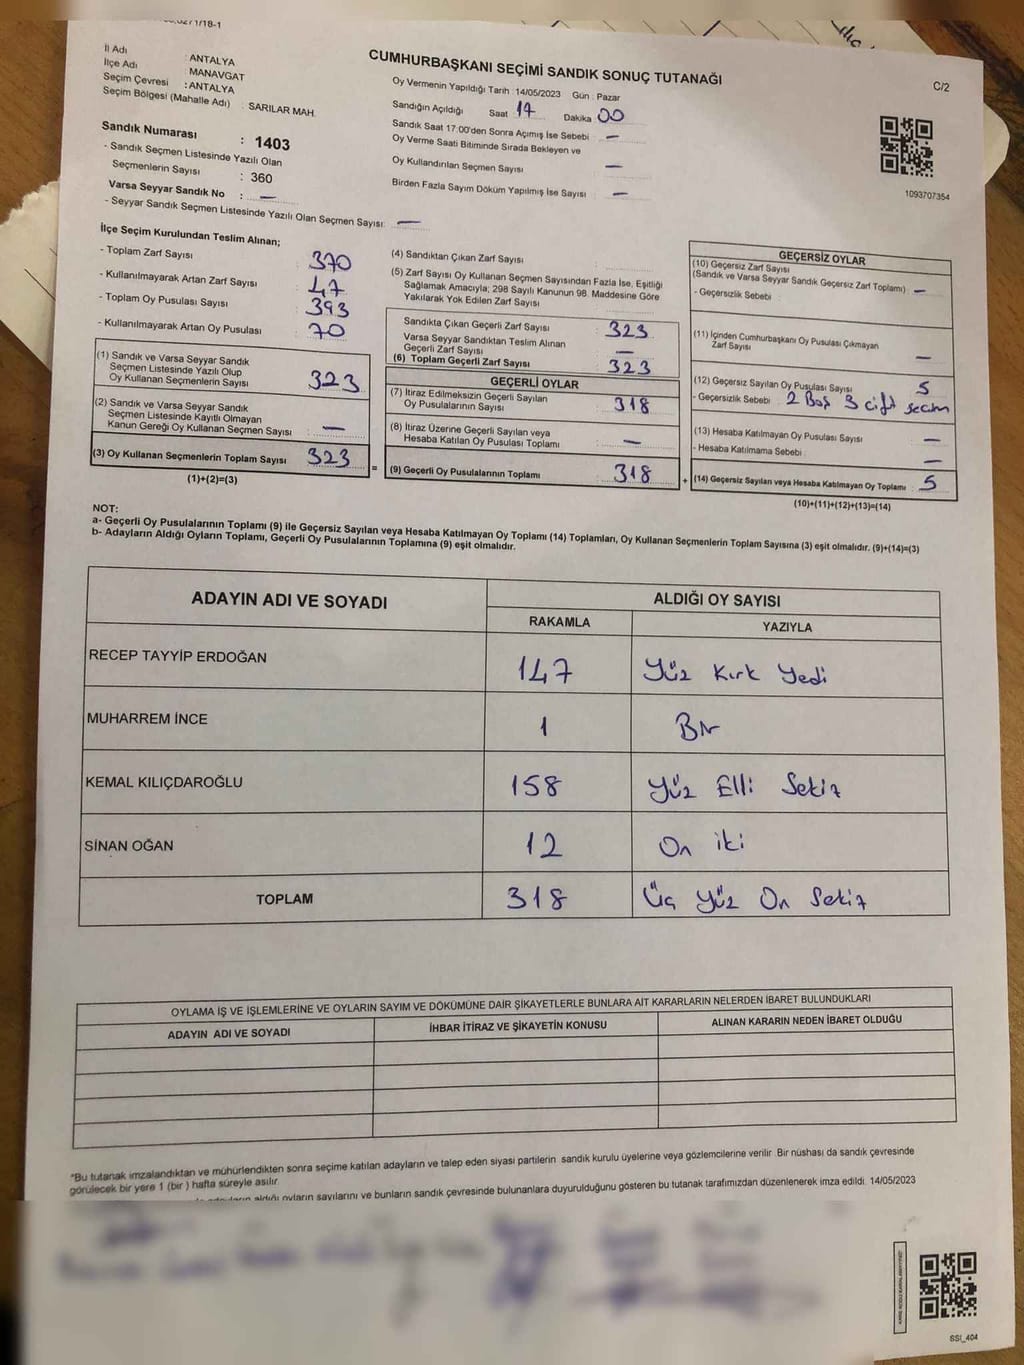 CUMHURBAŞKANI SEÇİMİ SANDIK SONUÇ TUTANAĞI
C/2
İl Adı : ANTALYA
İlçe Adı : MANAVGAT
Seçim Çevresi : ANTALYA
Seçim Bölgesi (Mahalle Adı) : SARILAR MAH.
Sandık Numarası : 1403
- Sandık Seçmen Listesinde Yazılı Olan
Seçmenlerin Sayısı : 360
Varsa Seyyar Sandık No : —
- Seyyar Sandık Seçmen Listesinde Yazılı Olan Seçmen Sayısı: —
Oy Vermenin Yapıldığı Tarih : 14/05/2023 Gün : Pazar
Sandığın Açıldığı Saat 17 Dakika 00
Sandık Saat 17:00'den Sonra Açımış İse Sebebi : —
Oy Verme Saati Bitiminde Sırada Bekleyen ve
Oy Kullandırılan Seçmen Sayısı : —
Birden Fazla Sayım Döküm Yapılmış İse Sayısı : —
1093707354
İlçe Seçim Kurulundan Teslim Alınan;
- Toplam Zarf Sayısı : 370
- Kullanılmayarak Artan Zarf Sayısı : 47
- Toplam Oy Pusulası Sayısı : 393
- Kullanılmayarak Artan Oy Pusulası : 70
(1) Sandık ve Varsa Seyyar Sandık
Seçmen Listesinde Yazılı Olup
Oy Kullanan Seçmenlerin Sayısı : 323
(2) Sandık ve Varsa Seyyar Sandık
Seçmen Listesinde Kayıtlı Olmayan
Kanun Gereği Oy Kullanan Seçmen Sayısı : —
(3) Oy Kullanan Seçmenlerin Toplam Sayısı : 323
(1)+(2)=(3)
(4) Sandıktan Çıkan Zarf Sayısı :
(5) Zarf Sayısı Oy Kullanan Seçmen Sayısından Fazla İse, Eşitliği
Sağlamak Amacıyla; 298 Sayılı Kanunun 98. Maddesine Göre
Yakılarak Yok Edilen Zarf Sayısı :
Sandıkta Çıkan Geçerli Zarf Sayısı : 323
Varsa Seyyar Sandıktan Teslim Alınan
Geçerli Zarf Sayısı : —
(6) Toplam Geçerli Zarf Sayısı : 323
GEÇERLİ OYLAR
(7) İtiraz Edilmeksizin Geçerli Sayılan
Oy Pusulalarının Sayısı : 318
(8) İtiraz Üzerine Geçerli Sayılan veya
Hesaba Katılan Oy Pusulası Toplamı : —
= (9) Geçerli Oy Pusulalarının Toplamı : 318
GEÇERSİZ OYLAR
(10) Geçersiz Zarf Sayısı
(Sandık ve Varsa Seyyar Sandık Geçersiz Zarf Toplamı) : —
- Geçersizlik Sebebi :
(11) İçinden Cumhurbaşkanı Oy Pusulası Çıkmayan
Zarf Sayısı : —
(12) Geçersiz Sayılan Oy Pusulası Sayısı : 5
- Geçersizlik Sebebi : 2 Boş 3 çift seçim
(13) Hesaba Katılmayan Oy Pusulası Sayısı : —
- Hesaba Katılmama Sebebi : —
+ (14) Geçersiz Sayılan veya Hesaba Katılmayan Oy Toplamı : 5
(10)+(11)+(12)+(13)=(14)
NOT:
a- Geçerli Oy Pusulalarının Toplamı (9) ile Geçersiz Sayılan veya Hesaba Katılmayan Oy Toplamı (14) Toplamları, Oy Kullanan Seçmenlerin Toplam Sayısına (3) eşit olmalıdır. (9)+(14)=(3)
b- Adayların Aldığı Oyların Toplamı, Geçerli Oy Pusulalarının Toplamına (9) eşit olmalıdır.
ADAYIN ADI VE SOYADI ALDIĞI OY SAYISI
RAKAMLA YAZIYLA
RECEP TAYYİP ERDOĞAN 147 Yüz Kırk Yedi
MUHARREM İNCE 1 Bir
KEMAL KILIÇDAROĞLU 158 Yüz Elli Sekiz
SİNAN OĞAN 12 On iki
TOPLAM 318 Üç Yüz On Sekiz
OYLAMA İŞ VE İŞLEMLERİNE VE OYLARIN SAYIM VE DÖKÜMÜNE DAİR ŞİKAYETLERLE BUNLARA AİT KARARLARIN NELERDEN İBARET BULUNDUKLARI
ADAYIN ADI VE SOYADI İHBAR İTİRAZ VE ŞİKAYETİN KONUSU ALINAN KARARIN NEDEN İBARET OLDUĞU
*Bu tutanak imzalandıktan ve mühürlendikten sonra seçime katılan adayların ve talep eden siyasi partilerin sandık kurulu üyelerine veya gözlemcilerine verilir. Bir nüshası da sandık çevresinde
görülecek bir yere 1 (bir) hafta süreyle asılır.
aldığı oyların sayılarını ve bunların sandık çevresinde bulunanlara duyurulduğunu gösteren bu tutanak tarafımızdan düzenlenerek imza edildi. 14/05/2023
SSI_404